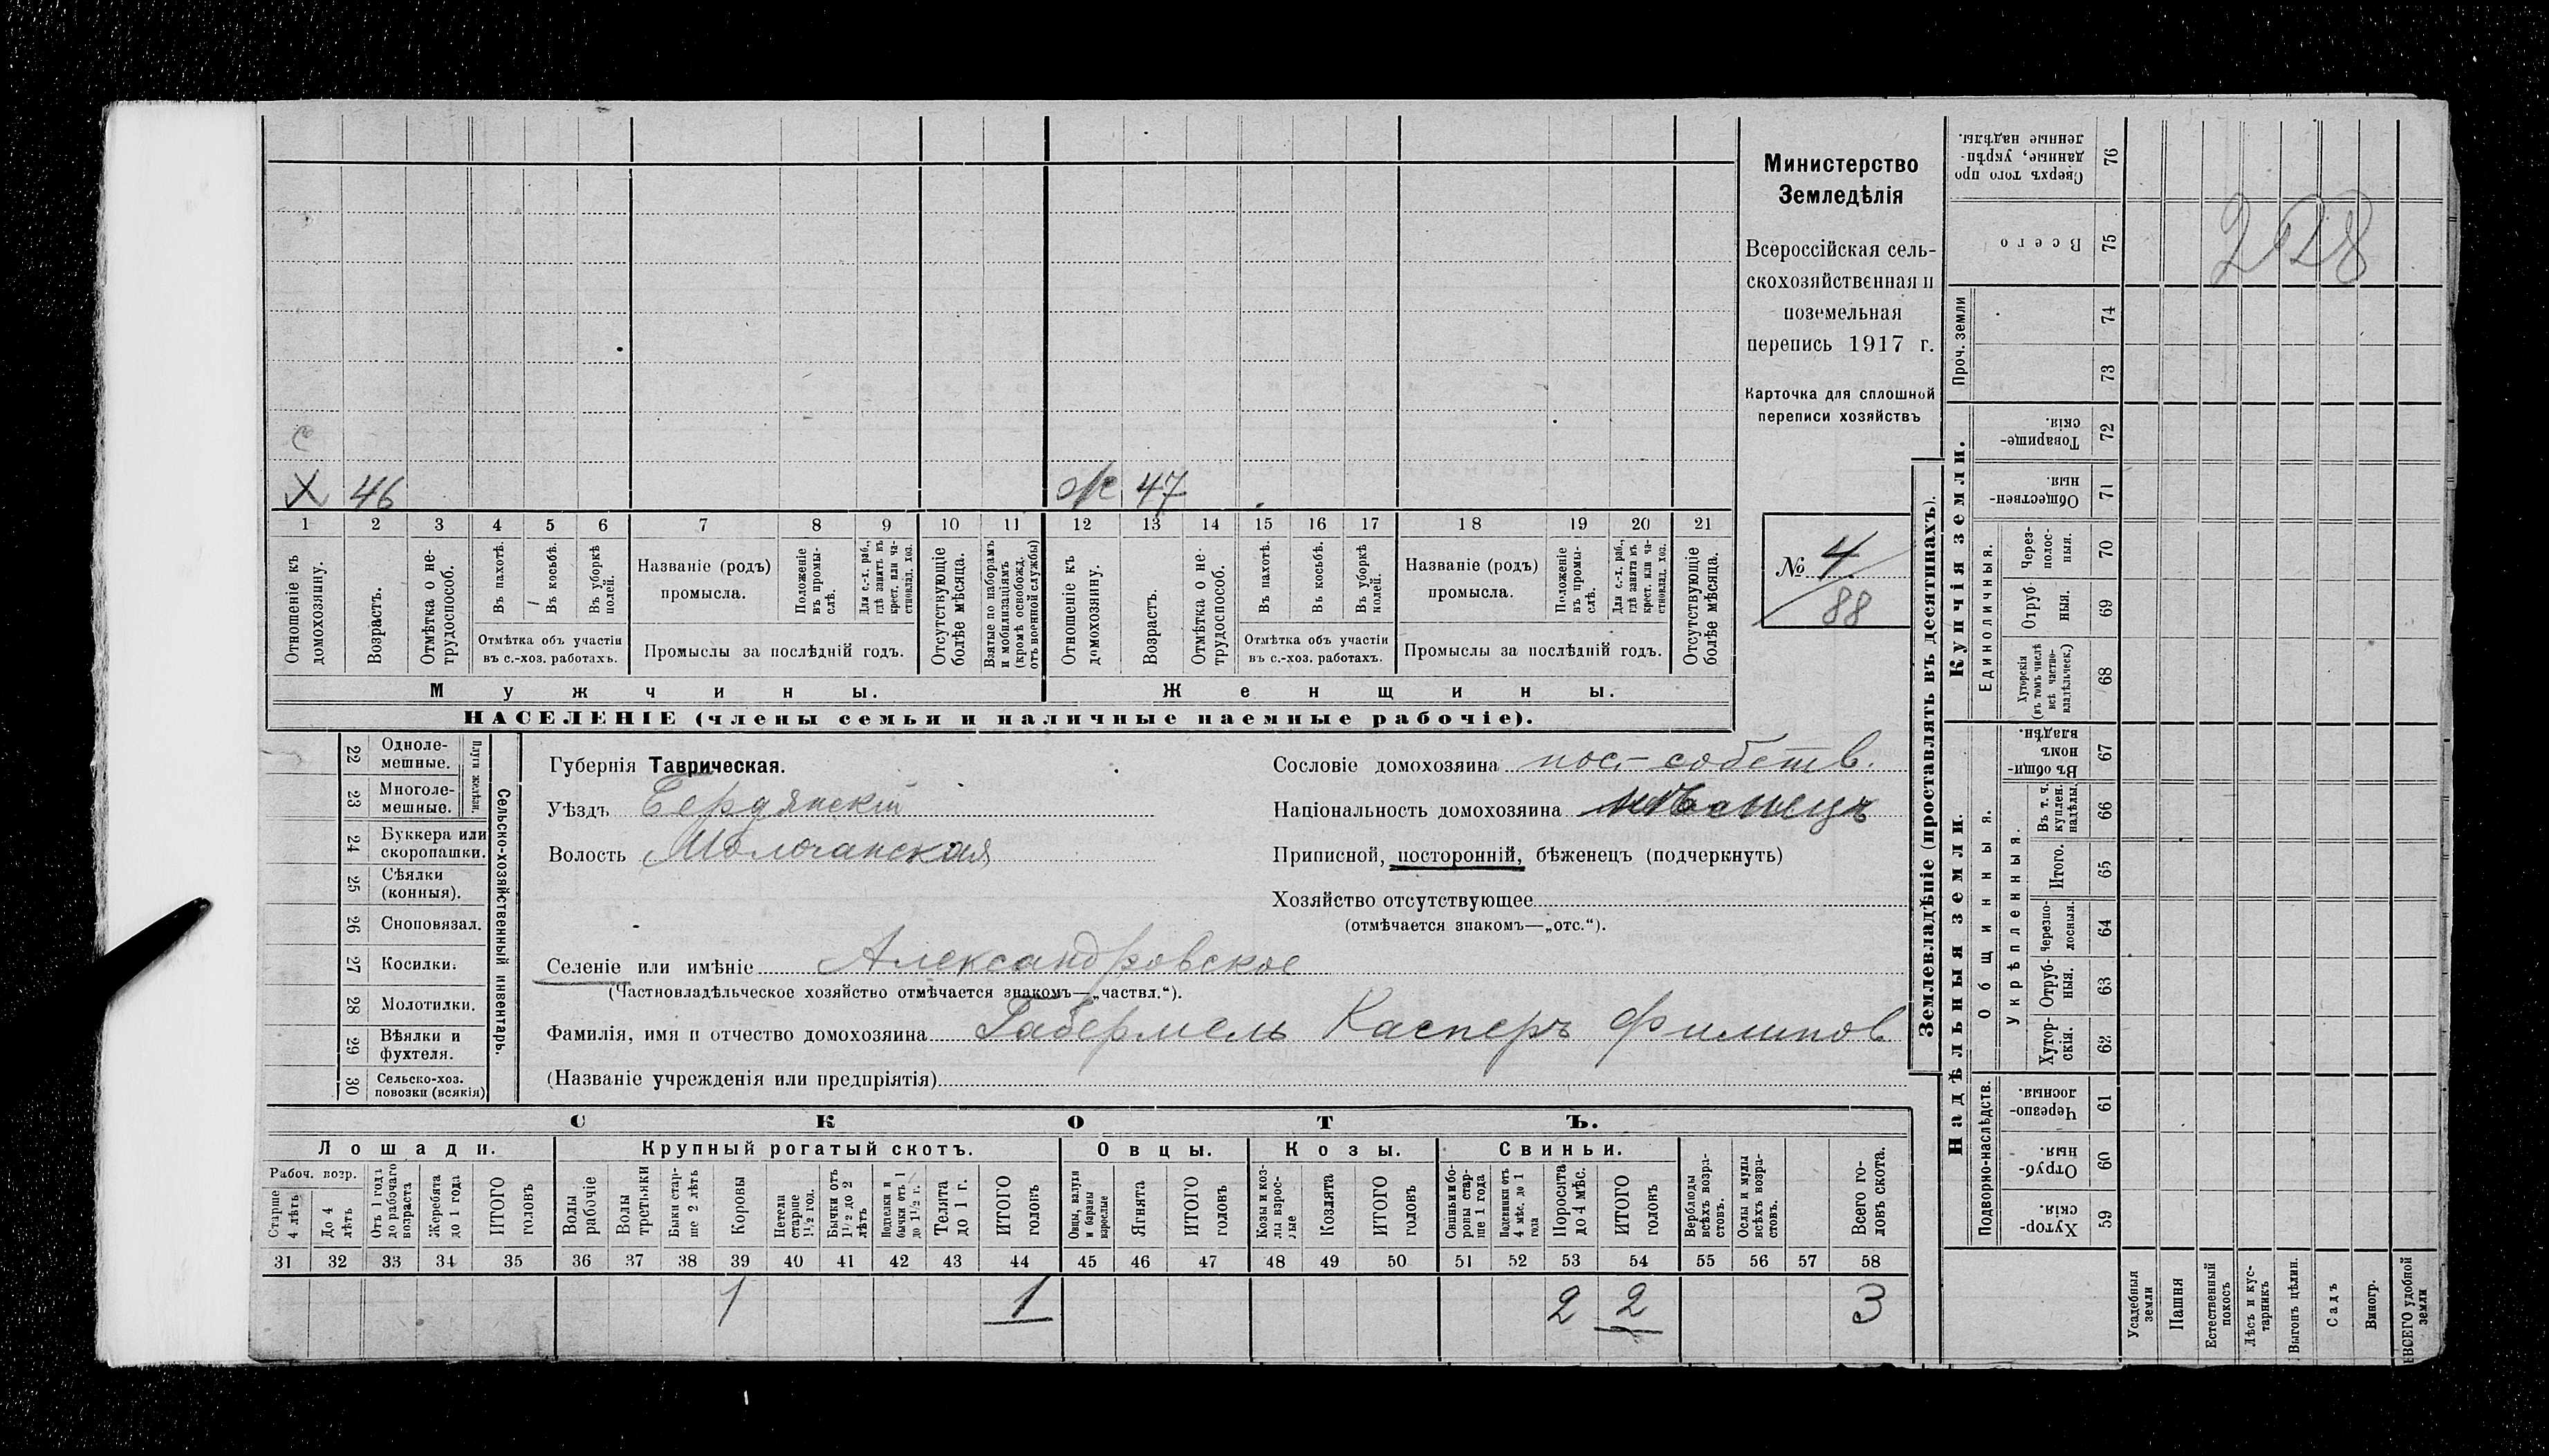 Министерство
Земледѣлія
Всероссійская сель-
скохозяйственная и
поземельная
перепись 1917 г.
Карточка для сплошной
переписи хозяйствъ
№ 4
88
Х 46
ж 47
1 2 3 4 5 6 7 8 9 10 11 12 13 14 15 16 17 18 19 20 21
Отношеніе къ домохозяину.
Возрастъ.
Отмѣтка о не-
трудоспособ.
Въ пахотѣ.
Въ косьбѣ.
Въ уборкѣ
полей.
Отмѣтка объ участіи
въ с.-хоз. работахъ.
Названіе (родъ)
промысла.
Положеніе
въ промы-
слѣ.
Для с.-х. раб.,
гдѣ занятъ въ
крест. или ча-
стновлад. хоз.
Промыслы за послѣдній годъ.
Отсутствующіе
болѣе мѣсяца.
Взятые по наборамъ
и мобилизаціямъ
(кромѣ освобожд.
отъ военной службы)
Отношеніе къ
домохозяину.
Возрастъ.
Отмѣтка о не-
трудоспособ.
Въ пахотѣ.
Въ косьбѣ.
Въ уборкѣ
полей.
Отмѣтка объ участіи
въ с.-хоз. работахъ.
Названіе (родъ)
промысла.
Положеніе
въ промы-
слѣ.
Для с.-х. раб.,
гдѣ занята въ
крест. или ча-
стновлад. хоз.
Промыслы за послѣдній годъ.
Отсутствующіе
болѣе мѣсяца.
Мужчины.
Женщины.
НАСЕЛЕНІЕ (члены семьи и наличные наемные рабочіе).
22 Одноле-
мешные.
23 Многоле-
мешные.
Плуги желѣзн.
24 Буккера или
скоропашки.
25 Сѣялки
(конныя).
26 Сноповязал.
27 Косилки.
28 Молотилки.
29 Вѣялки и
фухтеля.
30 Сельско-хоз.
повозки (всякія)
Сельско-хозяйственный инвентарь.
Губернія Таврическая.
Уѣздъ Бердянскій
Волость Молочанская
Сословіе домохозяина пос.-собств.
Національность домохозяина нѣмецъ
Приписной, посторонній, бѣженецъ (подчеркнуть)
Хозяйство отсутствующее
(отмѣчается знакомъ—„отс.“).
Селеніе или имѣніе Александровское
(Частновладѣльческое хозяйство отмѣчается знакомъ—„частвл.“).
Фамилія, имя и отчество домохозяина Габермель Касперъ Филипов
(Названіе учрежденія или предпріятія)
СКОТЪ.
Лошади.
Крупный рогатый скотъ.
Овцы.
Козы.
Свиньи.
Рабоч. возр.
Старше
4 лѣтъ
До 4
лѣтъ
Отъ 1 года
до рабочаго
возраста
Жеребята
до 1 года
ИТОГО
головъ
Волы
рабочіе
Волы
третьяки
Быки стар-
ше 2 лѣтъ
Коровы
Нетели
старше
1½ год.
Бычки отъ
1½ до 2
лѣтъ
Подтелки и
бычки отъ 1
до 1½ г.
Телята
до 1 г.
ИТОГО
головъ
Овцы, валухи
и бараны
взрослые
Ягнята
ИТОГО
головъ
Козы и коз-
лы взрос-
лые
Козлята
ИТОГО
головъ
Свиньи и бо-
ровы стар-
ше 1 года
Подсвинки отъ
4 мѣс. до 1
года
Поросята
до 4 мѣс.
ИТОГО
головъ
Верблюды
всѣхъ возра-
стовъ.
Ослы и мулы
всѣхъ возра-
стовъ.
Всего го-
ловъ скота.
31 32 33 34 35 36 37 38 39 40 41 42 43 44 45 46 47 48 49 50 51 52 53 54 55 56 57 58
1 1 2 2 3
Землевладѣніе (проставлять въ десятинахъ).
Надѣльныя земли.
Купчія земли.
Проч. земли
Подворно-наслѣдств.
Общинныя.
Укрѣпленныя.
Единоличныя.
Сверхъ того про
данные, укрѣп-
ленные надѣлы.
76
Всего
75
74
73
Товарище-
скія.
72
Обществен-
ныя.
71
Через-
полос-
ныя.
70
Отруб-
ныя.
69
Хуторскія
(въ томъ числѣ
всѣ частно-
владѣльческ.)
68
Въ общин-
номъ
владѣн.
67
Въ т. ч.
куплен.
надѣлы.
66
Итого.
65
Черезпо-
лосныя.
64
Отруб-
ныя.
63
Хутор-
скія.
62
Черезпо-
лосныя.
61
Отруб-
ныя.
60
Хутор-
скія.
59
Усадебныя
земли
Пашня
Естественный
покосъ
Лѣсъ и кус-
тарникъ
Выгонъ цѣлин.
Садъ
Виногр.
ВСЕГО удобной
земли
228